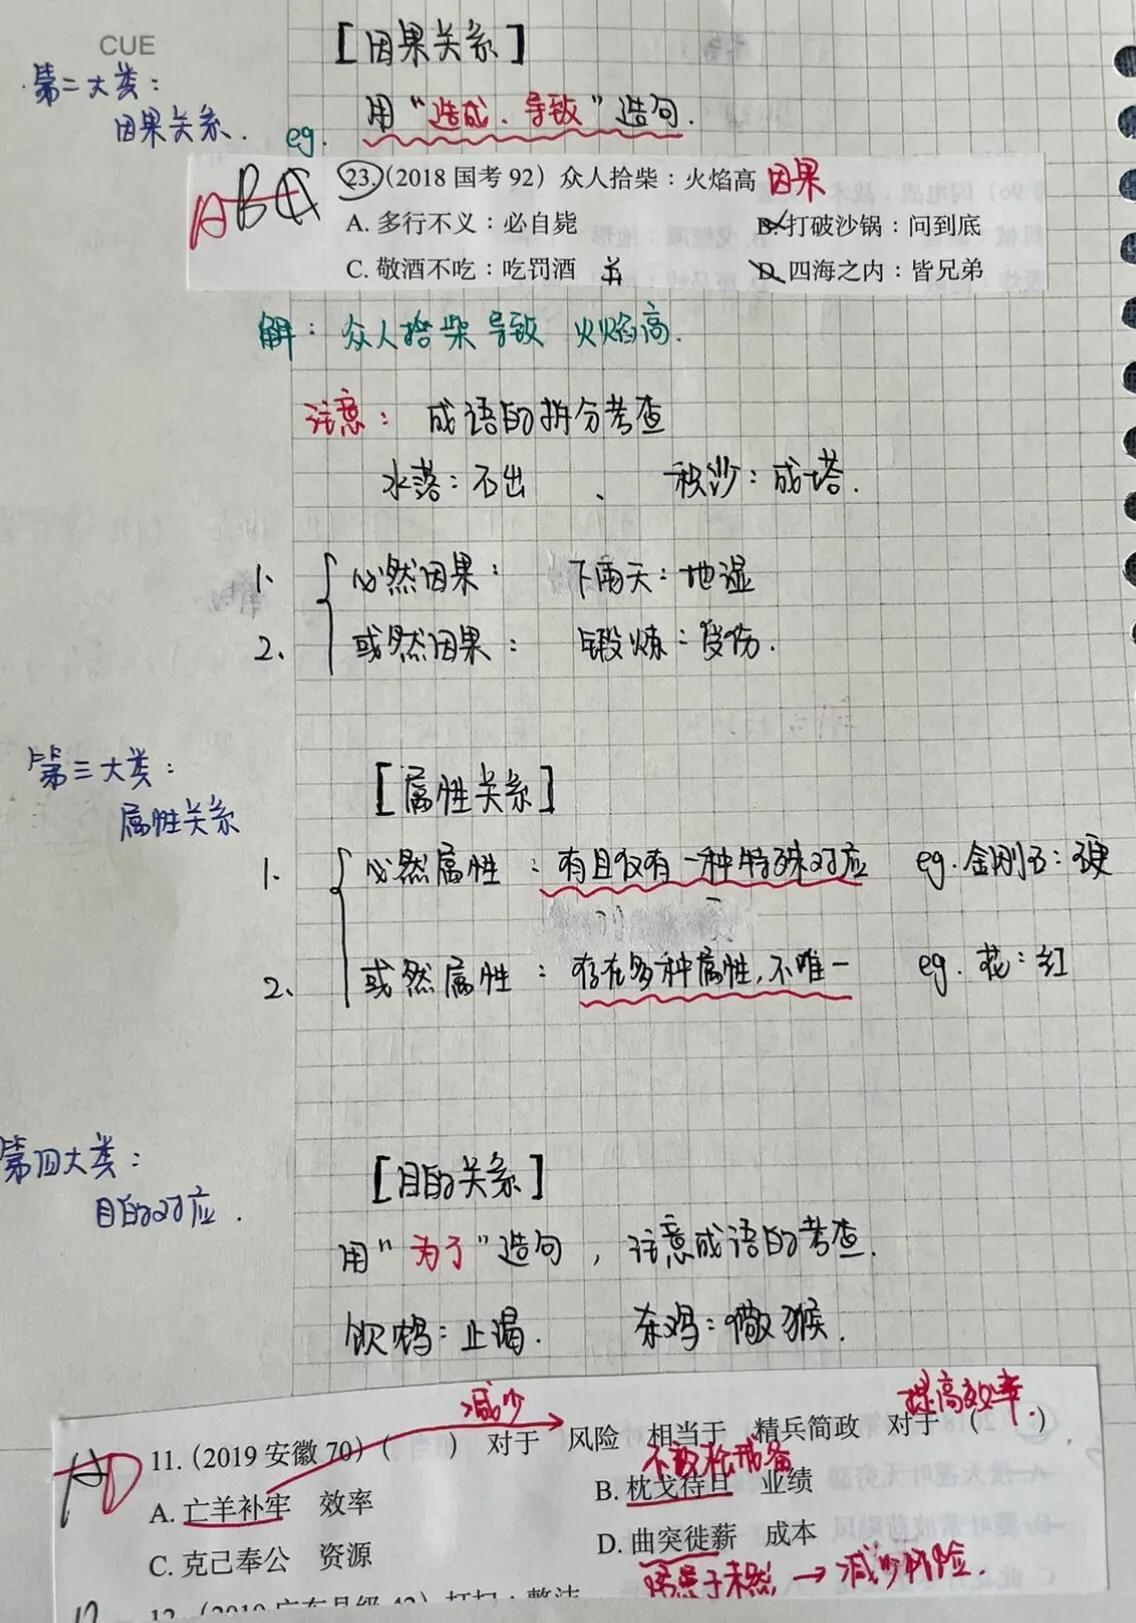 CUE
[因果关系]
第二大类：
因果关系.
用“造成、导致”造句.
eg.
ABA 23.(2018 国考 92) 众人拾柴：火焰高 因果
A. 多行不义：必自毙 B. 打破沙锅：问到底
C. 敬酒不吃：吃罚酒 并 D. 四海之内：皆兄弟
解：众人拾柴 导致 火焰高.
注意：成语的拆分考查
水落：石出 、 积沙：成塔.
1、必然因果： 下雨天：地湿
2、或然因果： 锻炼：受伤.
第三大类：
[属性关系]
属性关系
1、必然属性：有且仅有一种特殊对应 eg.金刚石：硬
2、或然属性：存在多种属性,不唯一 eg.花：红
第四大类：
[目的关系]
目的对应.
用“为了”造句，注意成语的考查.
饮鸩：止渴. 杀鸡：儆猴.
减少 提高效率.
AD 11. (2019 安徽 70) ( ) 对于 风险 相当于 精兵简政 对于 ( )
不敢松戒备
A. 亡羊补牢 效率 B. 枕戈待旦 业绩
C. 克己奉公 资源 D. 曲突徙薪 成本
防患于未然→减少风险.